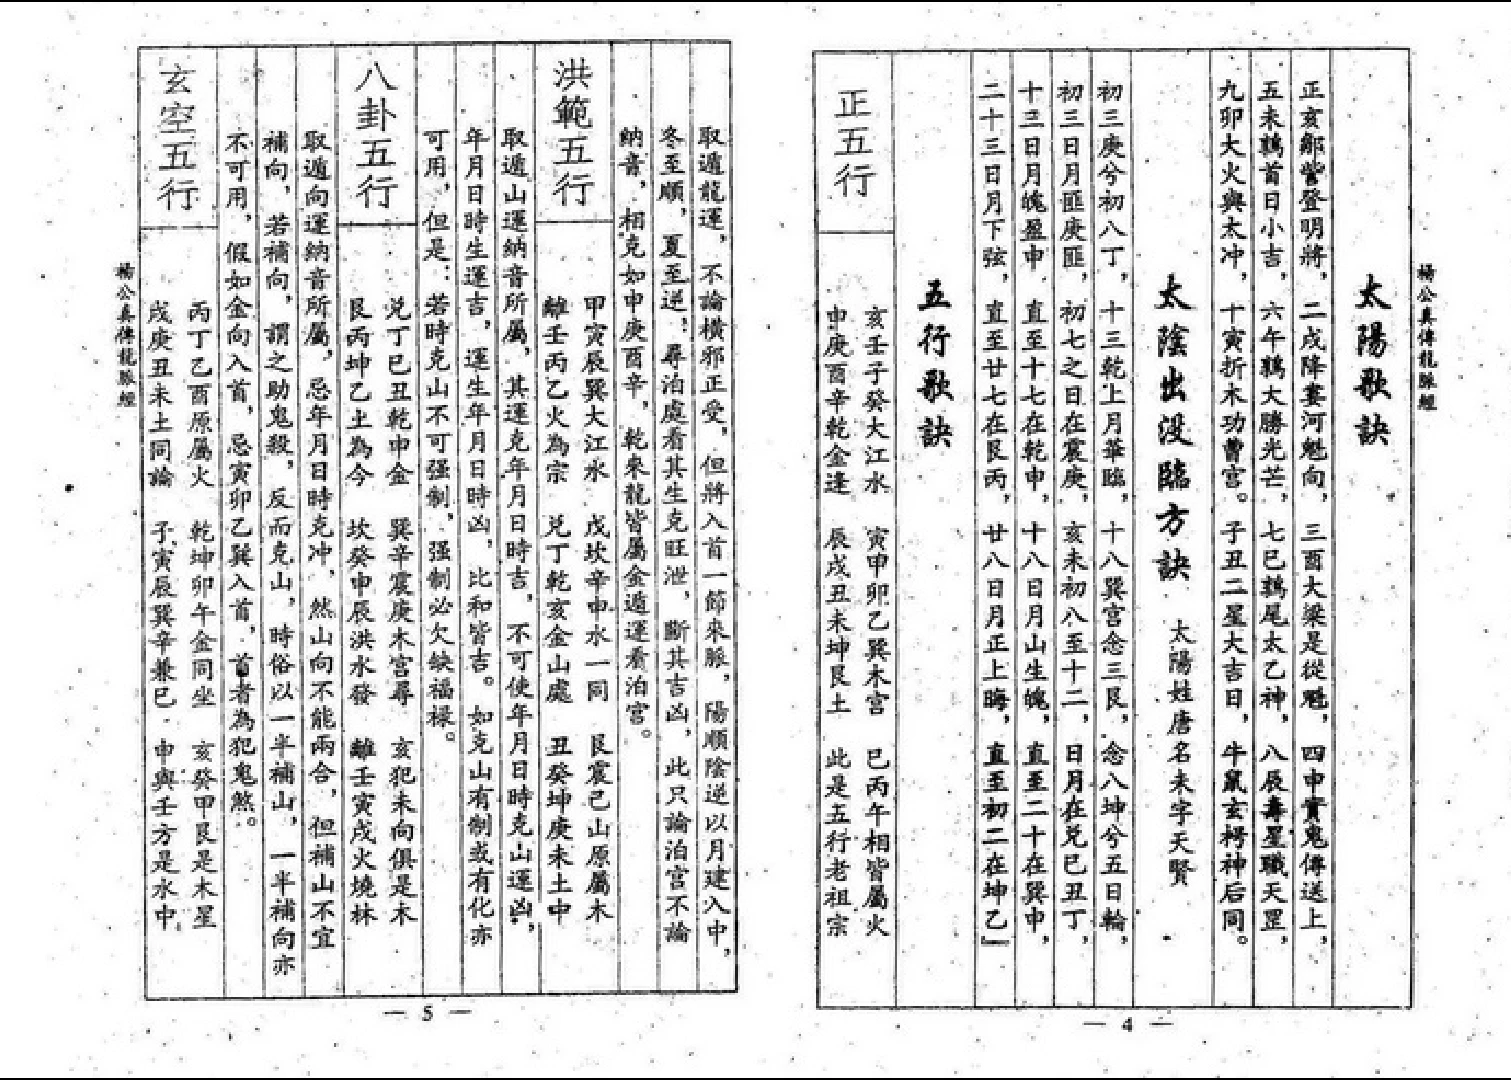 楊公真傳龍脈經
太陽歌訣
正亥鄒訾登明將，二戌降婁河魁向，三酉大梁是從魁，四申實鬼傳送上，
五未鶉首日小吉，六午鶉大勝光芒，七巳鶉尾太乙神，八辰壽星職天罡，
九卯大火與太冲，十寅折木功曹宮。子丑二星大吉日，牛鼠玄枵神后同。
太陰出没臨方訣 太陽姓唐名未字天賢
初三庚兮初八丁，十三乾上月華臨，十八巽宮念三艮，念八坤兮五日輪，
初三日月匪庚匪，初七之日在震庚，亥未初八至十二，日月在兌巳丑丁，
十三日月魄盈申，直至十七在乾申，十八日月山生魄，直至二十在巽申，
二十三日月下弦，直至廿七在艮丙，廿八日月正上晦，直至初二在坤乙」
五行歌訣
正五行
亥壬子癸大江水 寅甲卯乙巽木宮 巳丙午相皆屬火
申庚酉辛乾金逢 辰戌丑未坤艮土 此是五行老祖宗
— 4 —
取遁龍運，不論橫邪正受，但將入首一節來脈，陽順陰逆以月建入中，
冬至順，夏至逆；尋泊處看其生克旺泄，斷其吉凶，此只論泊宮不論
納音，相克如申庚酉辛，乾來龍皆屬金遁運看泊宮。
洪範五行
甲寅辰巽大江水 戊坎辛申水一同 艮震巳山原屬木
離壬丙乙火為宗 兌丁乾亥金山處 丑癸坤庚未土中
取遁山運納音所屬，其運克年月日時吉，不可使年月日時克山運凶，
年月日時生運吉，運生年月日時凶，比和皆吉。如克山有制或有化亦
可用，但是：若時克山不可强制，强制必欠缺福祿。
八卦五行
兌丁巳丑乾申金 巽辛震庚木宮尋 亥犯未向俱是木
艮丙坤乙土為今 坎癸申辰洪水發 離壬寅戌火燒林
取遁向運納音所屬，忌年月日時克冲，然山向不能兩合，但補山不宜
補向，若補向，謂之助鬼殺，反而克山，時俗以一半補山，一半補向亦
不可用，假如金向入首，忌寅卯乙巽入首，首者為犯鬼煞。
玄空五行
丙丁乙酉原屬火 乾坤卯午金同坐 亥癸甲艮是木星
戌庚丑未土同論 子寅辰巽辛兼巳 申與壬方是水中
楊公真傳龍脈經
— 5 —